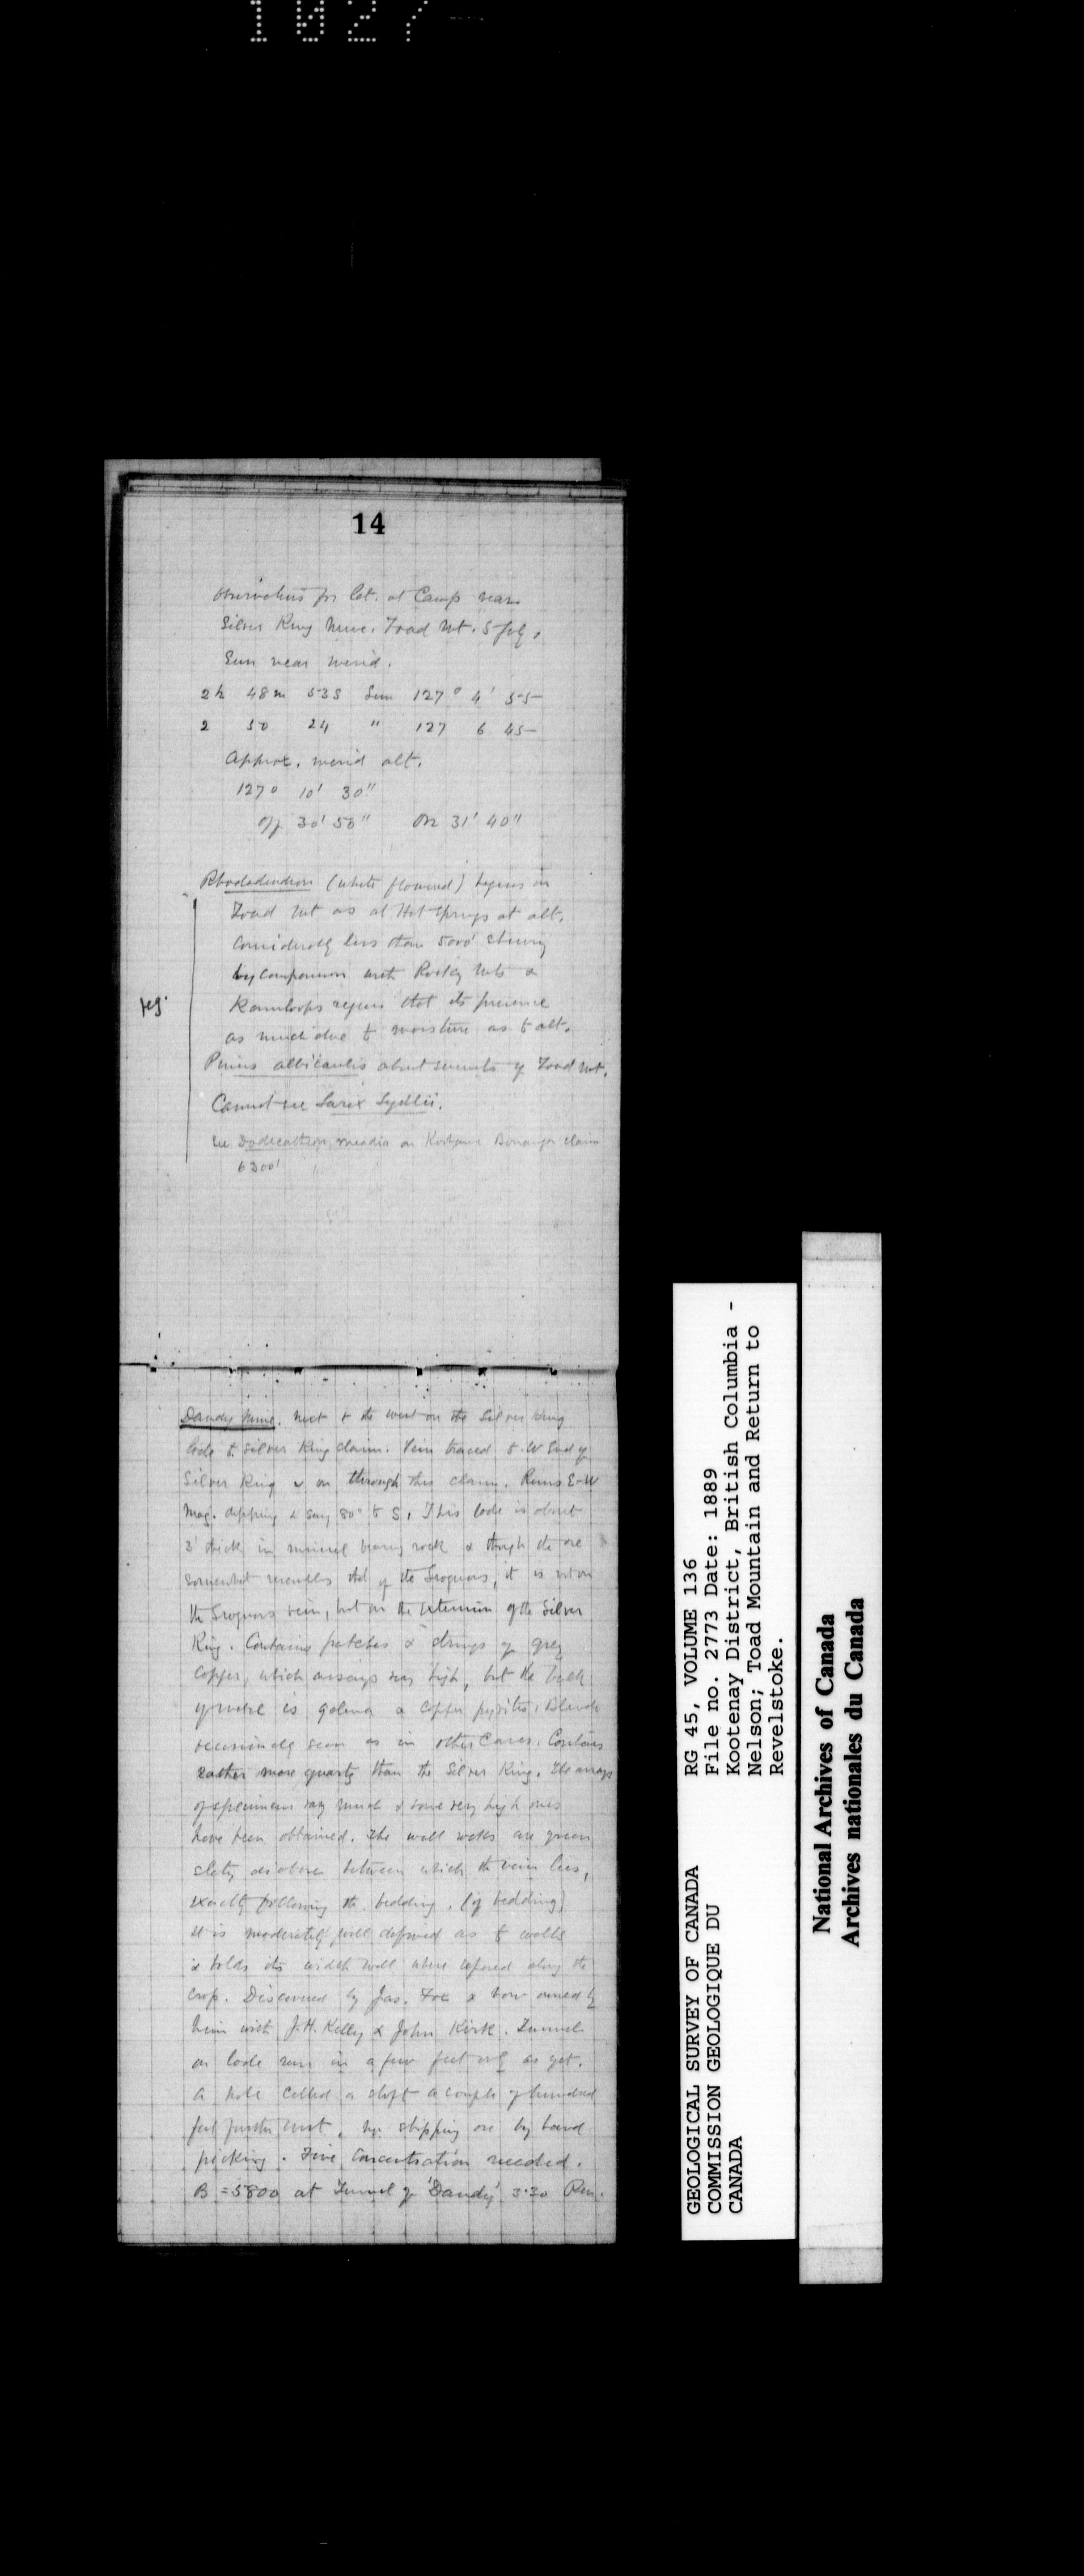 1027
14
Observations for lat. at Camp near
Silver King Mine. Toad Mt. 5 July.
Sun near merid.
2h 48m 53s Sun 127° 4' 55
2 50 24 " 127 6 45
Approx. merid alt.
127° 10' 30"
Off 30' 50" On 31' 40"
Rhododendron (white flowered) begins on
Toad Mt as at Hot Springs at alt.
Considerably less than 5000' showing
by comparison with Rocky Mts &
Kamloops region that its presence
as much due to moisture as to alt.
Pinus albicaulis about summits of Toad Mt.
Cannot see Larix Lyallii.
See Dodecatheon meadia on Kootenai Bonanza claim
6300'
Dandy Mine. Next to the west on the Silver King
lode to Silver King claim. Vein traced to W End of
Silver King & on through this claim. Runs E-W
Mag. dipping say 80° to S. This lode is about
3' thick in mineral bearing rock & though the ore
somewhat resembles that of the Iroquois, it is not on
the Iroquois vein, but on the extension of the Silver
King. Contains patches & strings of grey
Copper, which assays very high, but the bulk
of metal is galena & copper pyrites. Blende
occasionally seen as in other cases. Contains
rather more quartz than the Silver King. The assays
of specimens vary much & some very high ones
have been obtained. The wall rocks are green
slaty as above between which the vein lies,
exactly following the bedding. (if bedding)
It is moderately well defined as to walls
& holds its width well where exposed along the
crop. Discovered by Jas. Fox & now owned by
him with J.H. Kelly & John Kirk. Tunnel
on lode run in a few feet only as yet.
A hole called a shaft a couple of hundred
feet further west. shipping ore by hand
picking. Fine Concentration needed.
B = 5800 at Tunnel of 'Dandy' 3.30 Pm.
GEOLOGICAL SURVEY OF CANADA
COMMISSION GEOLOGIQUE DU
CANADA
RG 45, VOLUME 136
File no. 2773 Date: 1889
Kootenay District, British Columbia -
Nelson; Toad Mountain and Return to
Revelstoke.
National Archives of Canada
Archives nationales du Canada